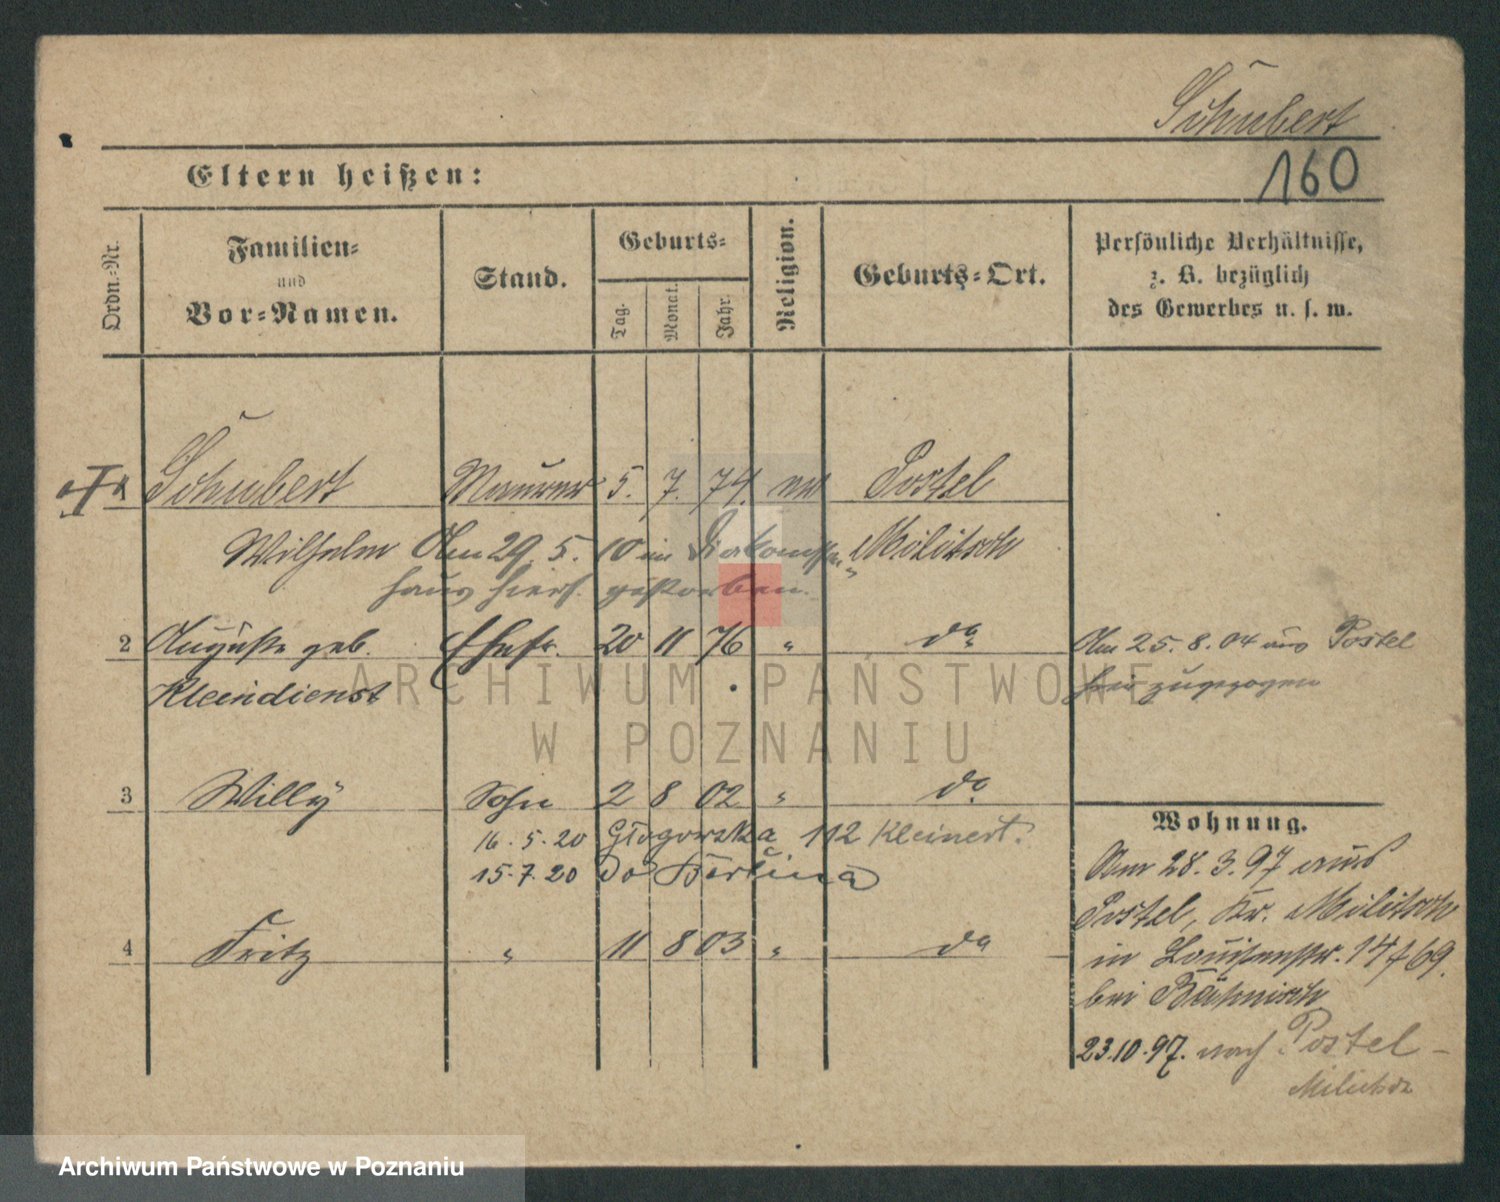 Schubert
160
Eltern heißen:
Ordn.-Nr.
Familien-
und
Vor-Namen.
Stand.
Geburts-
Tag.
Monat.
Jahr.
Religion.
Geburts-Ort.
Persönliche Verhältnisse,
z. B. bezüglich
des Gewerbes u. s. w.
Schubert Maurer 5. 7. 74. ev Postel
Wilhelm Am 29. 5. 10 im Diakonissen Militsch
haus hiers. gestorben.
2 Auguste geb. Ehefr. 20 11 76 " do Am 25. 8. 04 aus Postel
Kleindienst hier zugezogen
3 Willy Sohn 2 8 02 " do
16. 5. 20 Głogowska 112 Kleinert.
15. 7. 20 do Berlina
4 Fritz " 11 8 03 " do
Wohnung.
Am 28. 3. 97 aus
Postel, Kr. Militsch
in Louisenstr. 14/69.
bei Bähnisch
23.10.97. nach Postel -
Militsch
ARCHIWUM PAŃSTWOWE
W POZNANIU
Archiwum Państwowe w Poznaniu